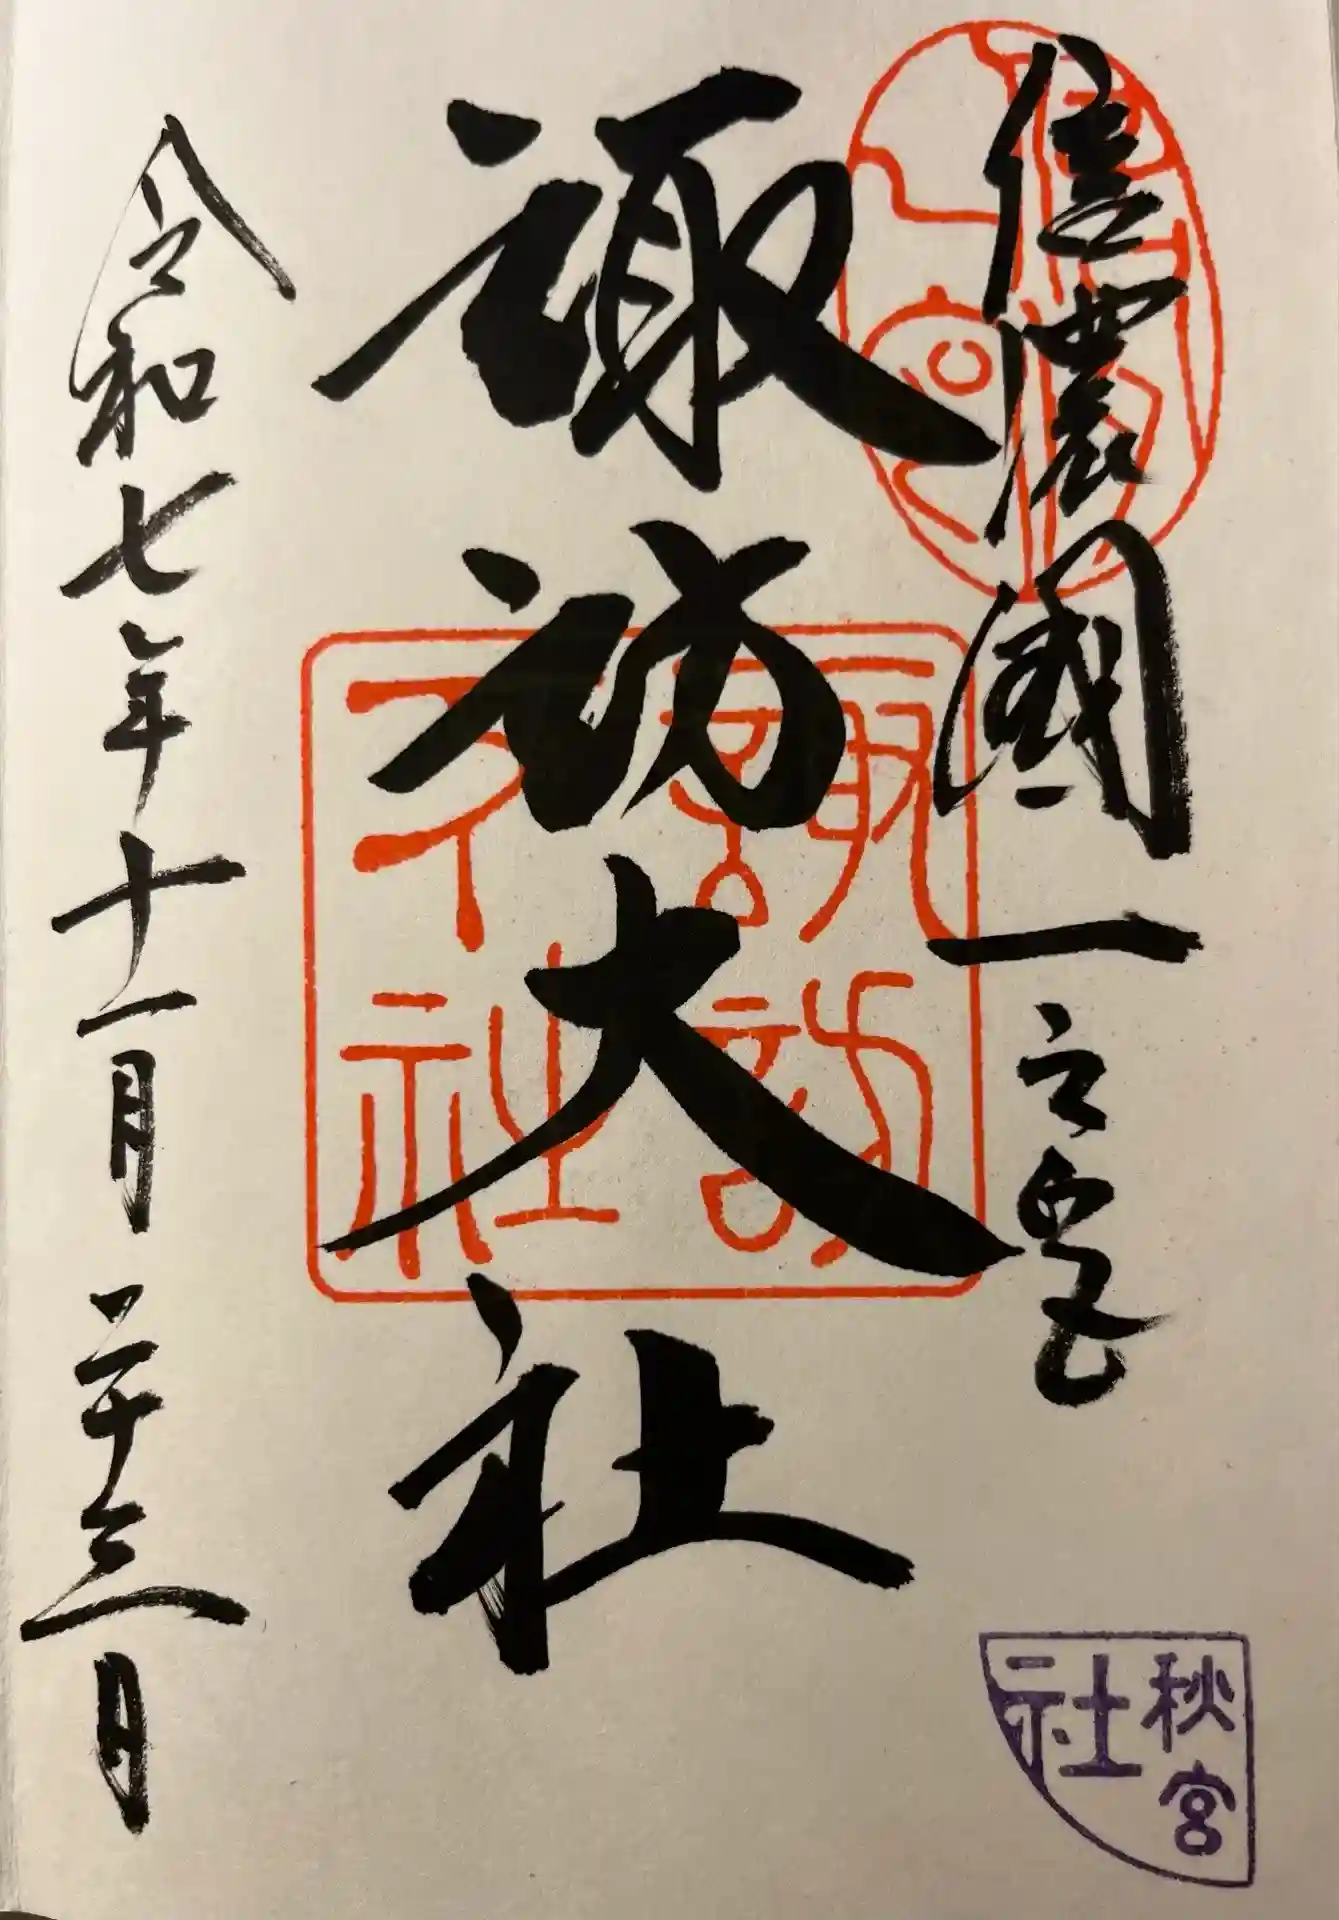 信濃國一之宮
諏訪大社
令和七年十一月二十三日
諏訪大社
秋宮
社